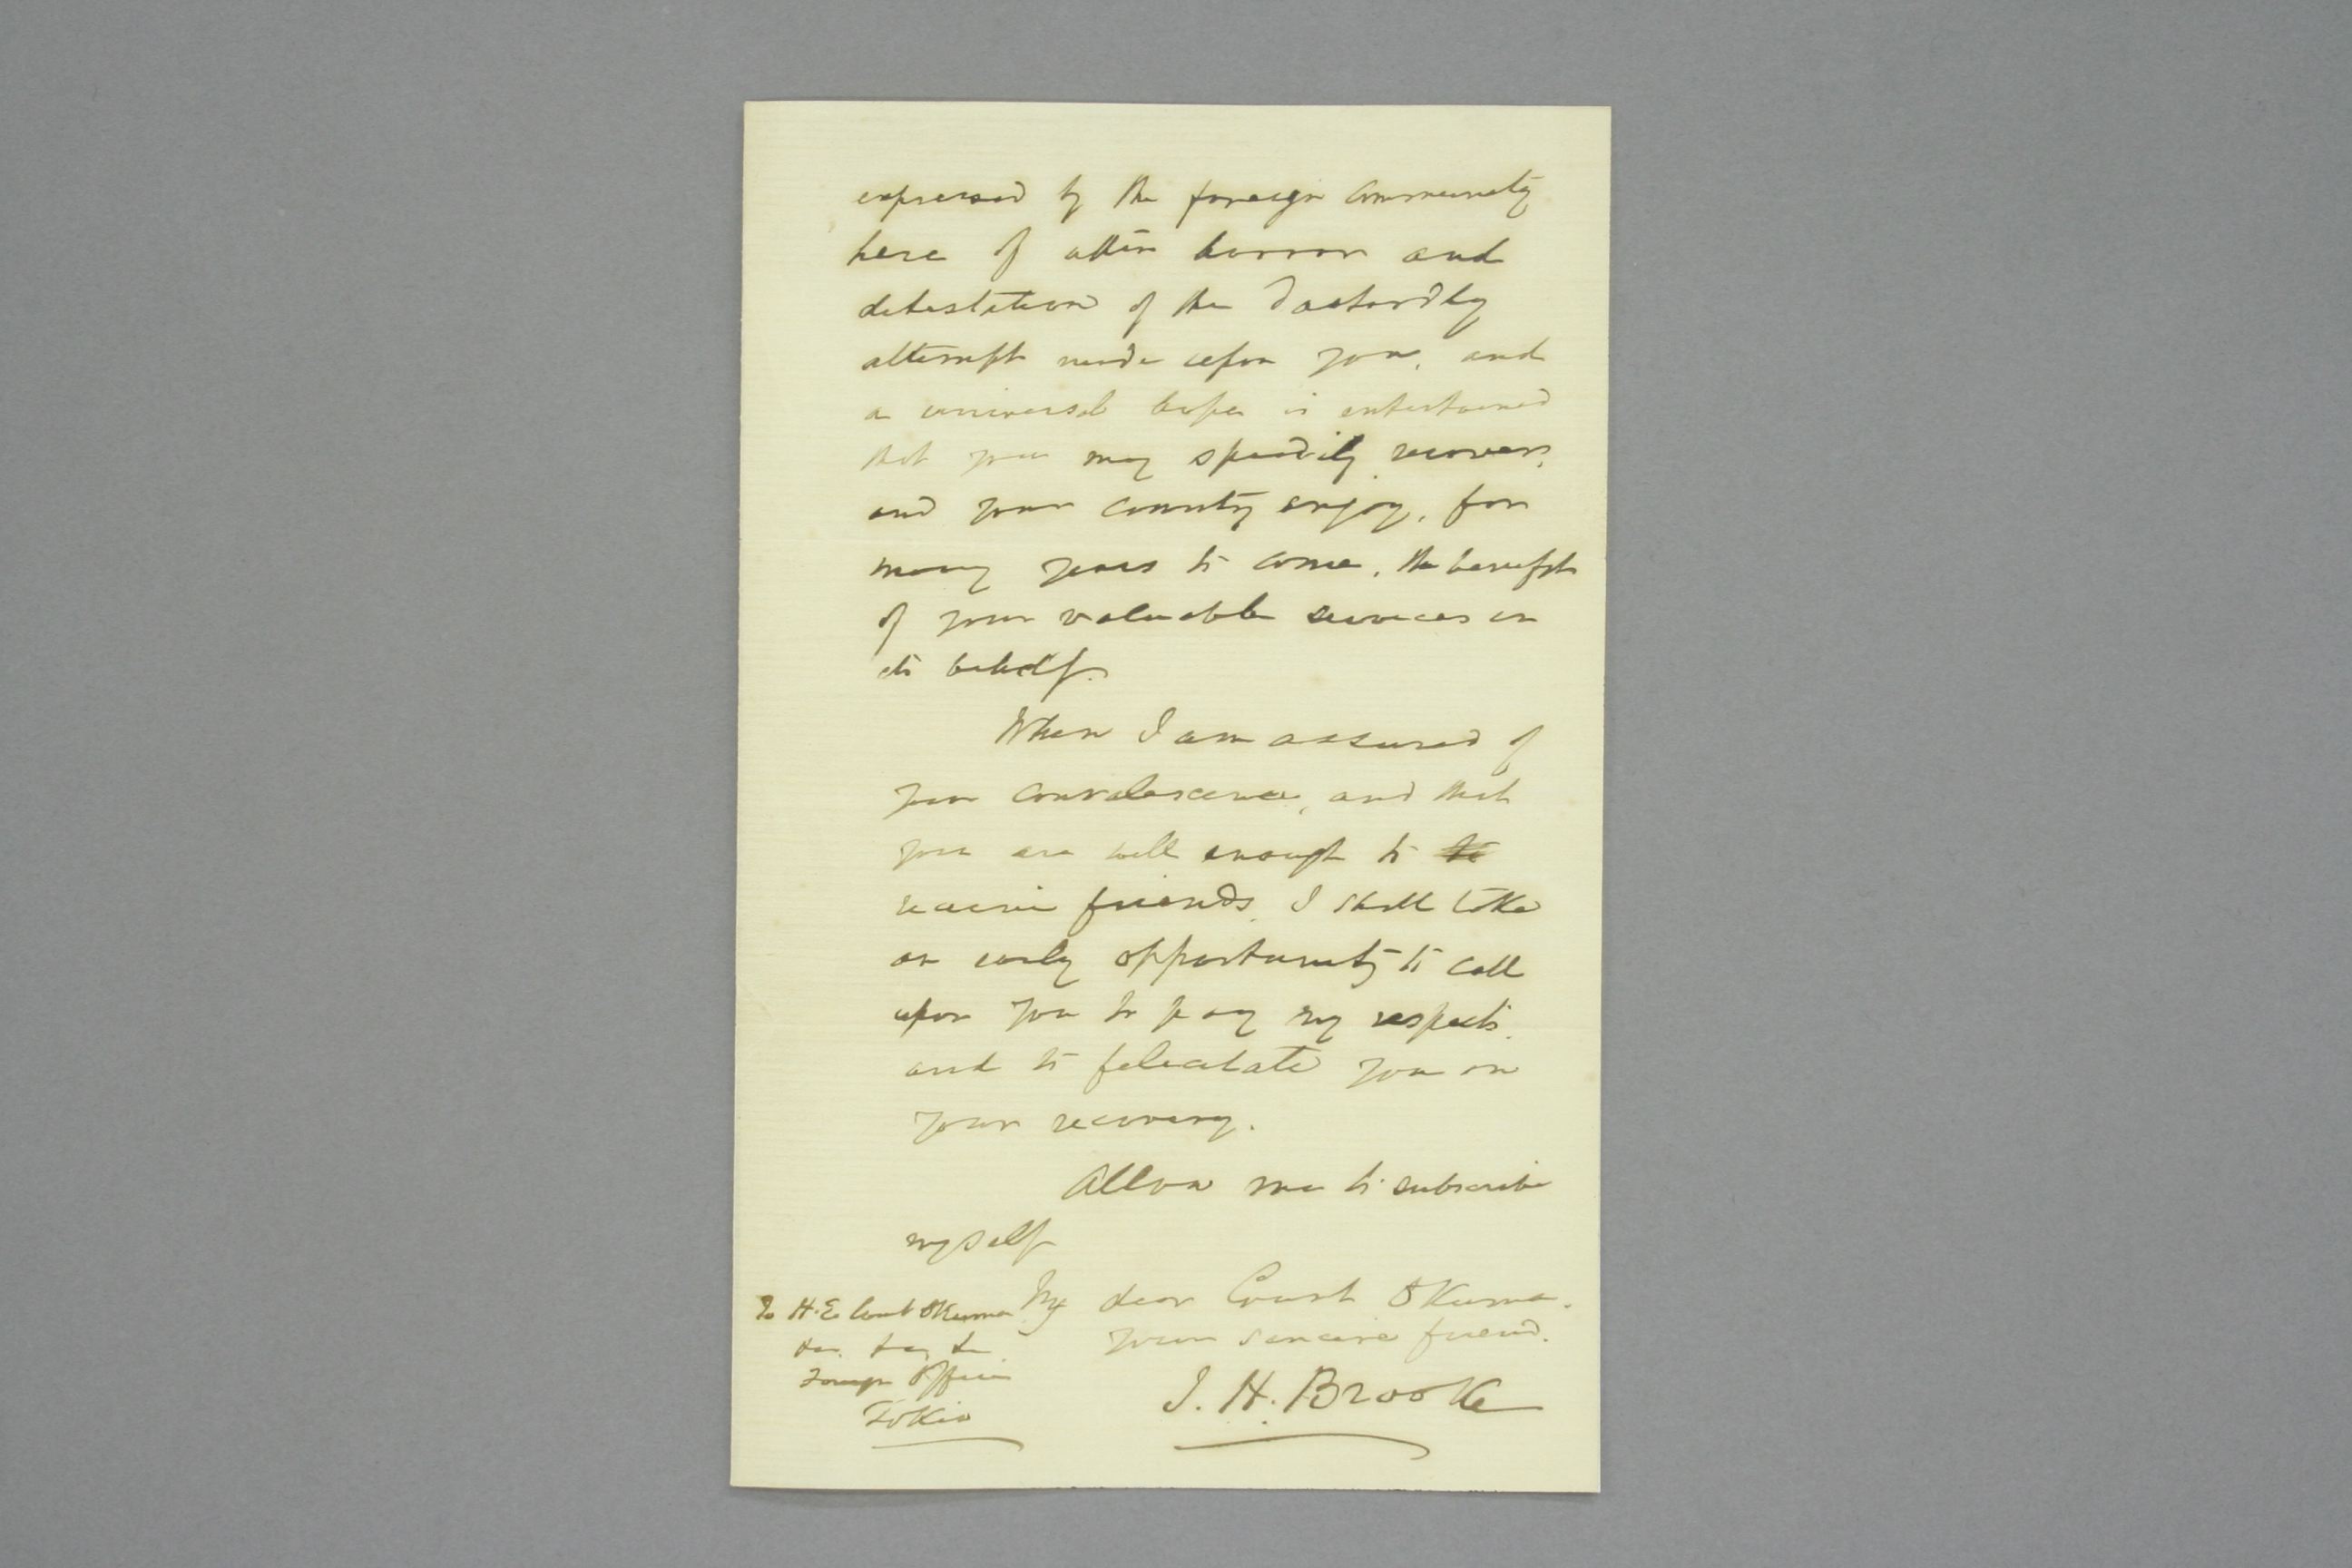 expressed by the foreign community
here of utter horror and
detestation of the dastardly
attempt made upon you, and
a universal hope is entertained
that you may speedily recover,
and your country enjoy, for
many years to come, the benefit
of your valuable services in
its behalf.
When I am assured of
your convalescence, and that
you are well enough to to
receive friends, I shall take
an early opportunity to call
upon you to pay my respects,
and to felicitate you on
your recovery.
Allow me to subscribe
myself
My dear Count Okuma.
Your sincere friend.
J. H. Brooke
To H.E. Count Okuma
Foreign Office
Tokio